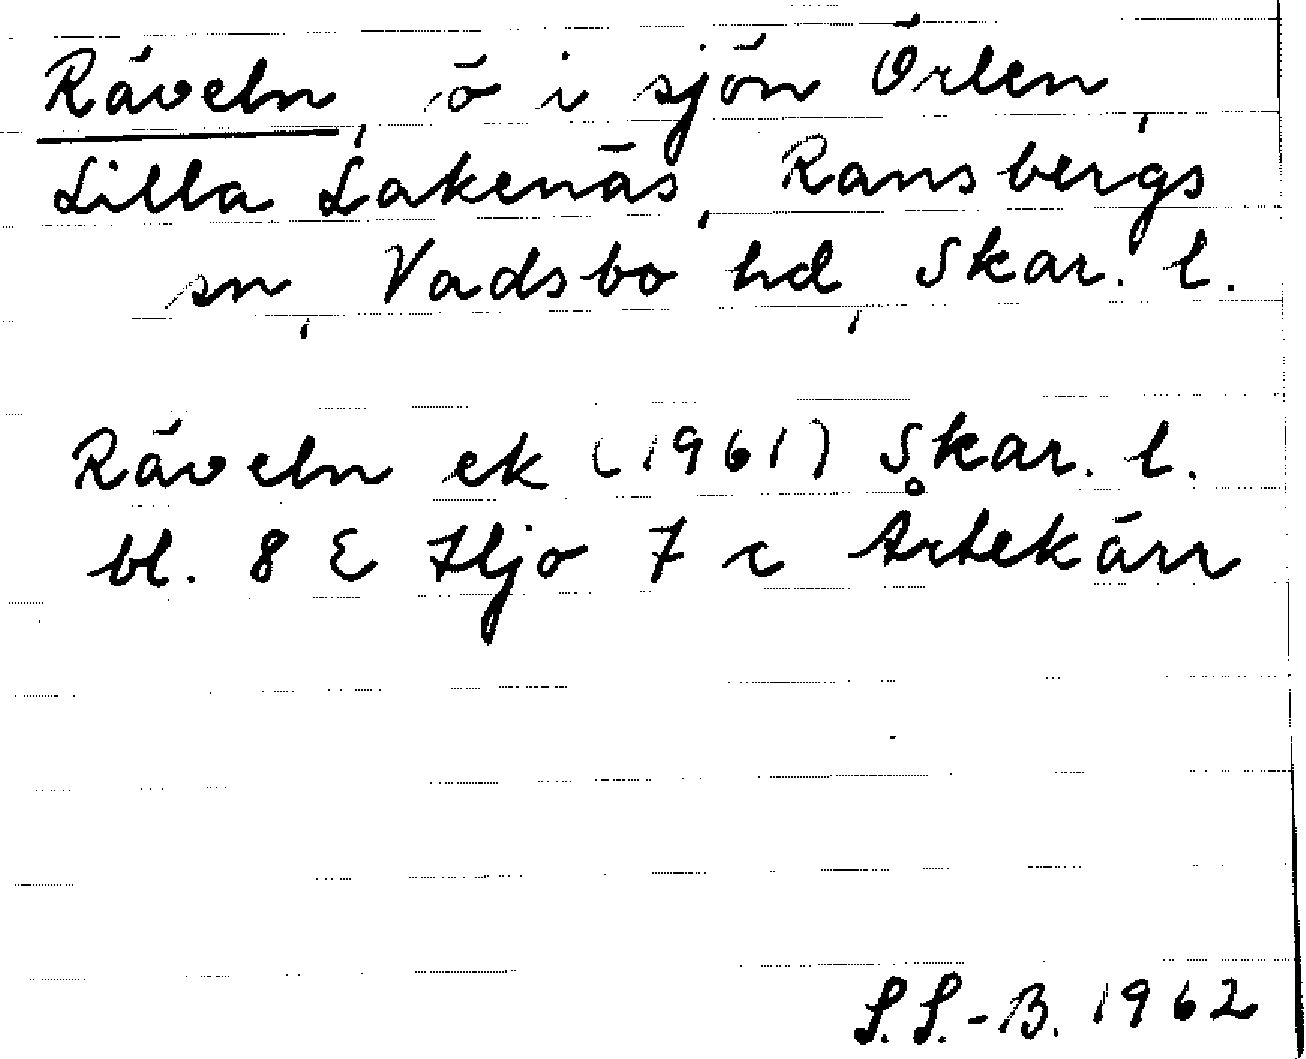 Räveln, ö i sjön Örlen,
Lilla Lakenäs, Ransbergs
sn, Vadsbo hd, Skar. l.
Räveln ek (1961) Skar. l.
bl. 8 E Hjo 7 c Årtekärr
S.S.-B. 1962